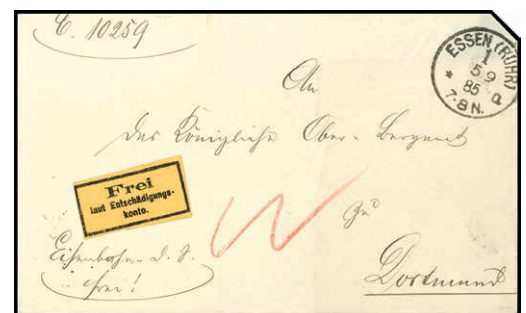 C. 10259
ESSEN (RUHR)
1
5 9
85
7-8 N.
An
das Königliche Ober-Bergamt
Frei
laut Entschädigungs-
konto.
zu
Eisenbahn- D. S.
frei!
Dortmund